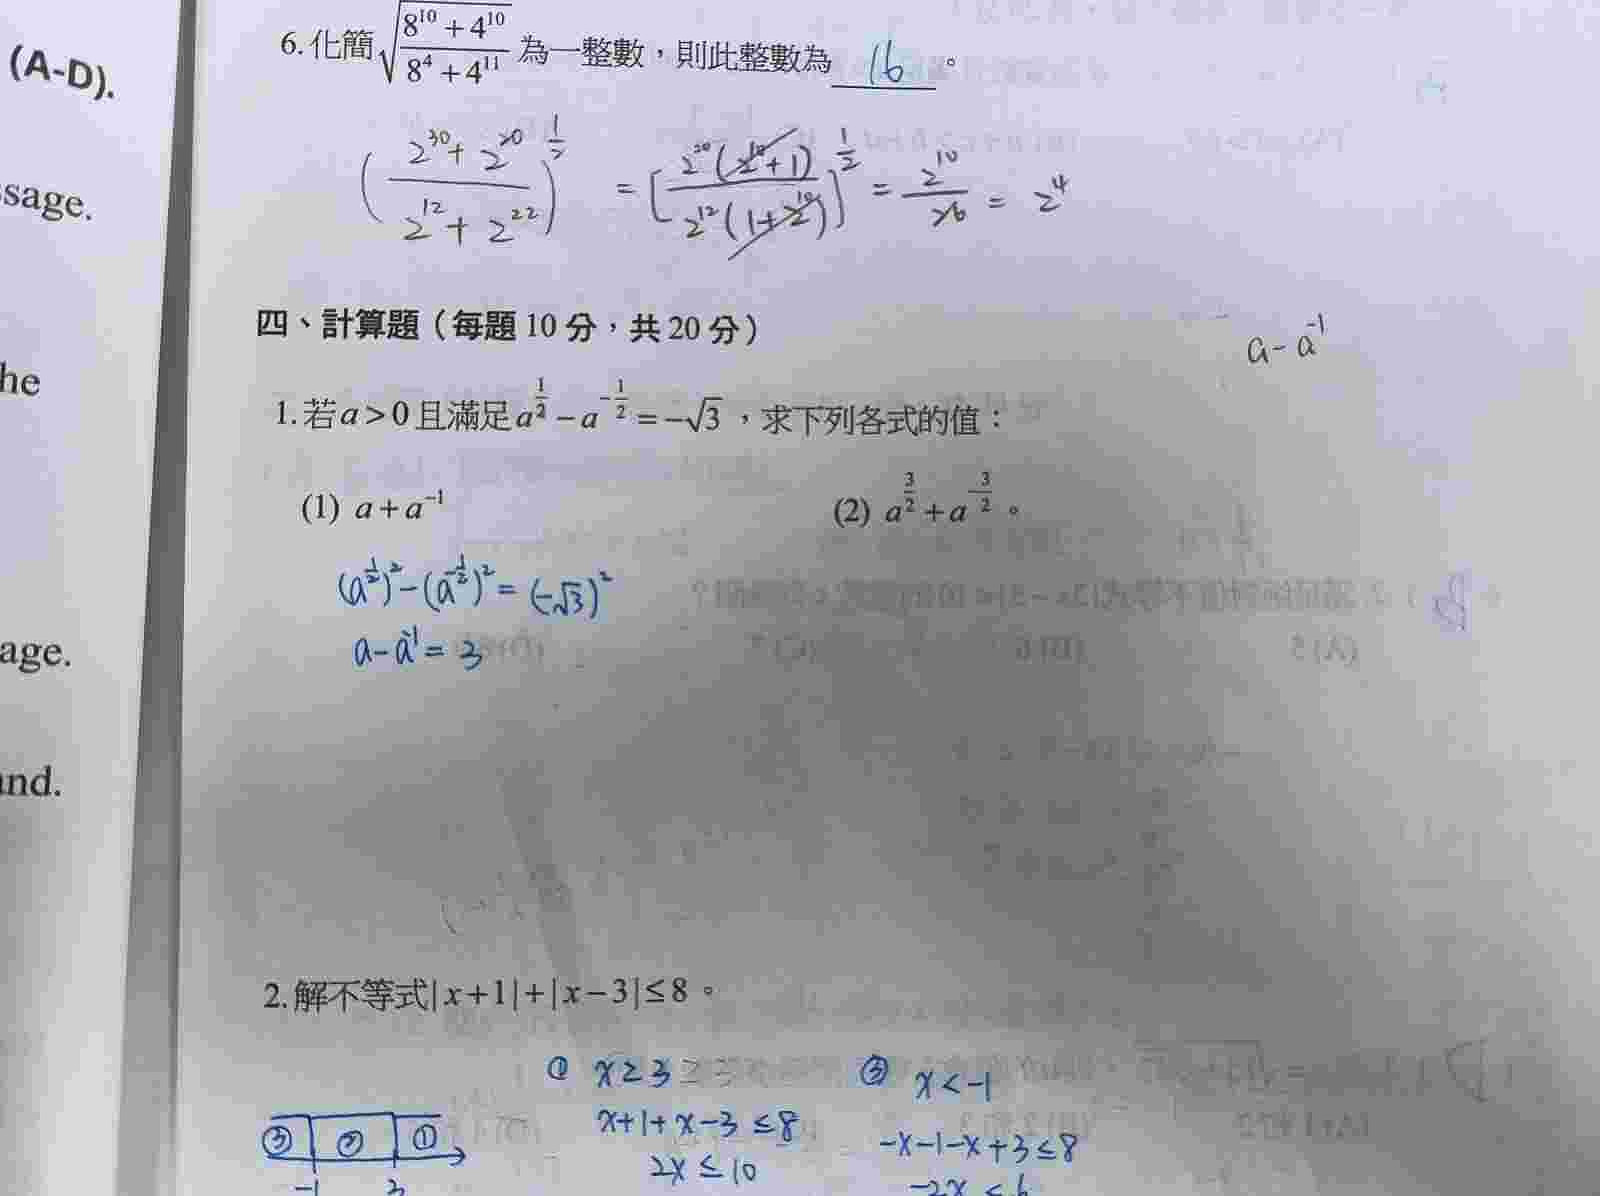 (A-D).
ssage.
he
age.
and.
6. 化簡 √((8^10 + 4^10)/(8^4 + 4^11)) 為一整數，則此整數為 16 。
((2^30 + 2^20)/(2^12 + 2^22))^(1/2) = [2^20(2^10+1)/2^12(1+2^10)]^(1/2) = 2^10/2^6 = 2^4
四、計算題（每題 10 分，共 20 分）
a - a^-1
1. 若 a > 0 且滿足 a^(1/2) - a^(-1/2) = -√3 ，求下列各式的值：
(1) a + a^-1 (2) a^(3/2) + a^(-3/2) 。
(a^(1/2))^2 - (a^(-1/2))^2 = (-√3)^2
a - a^-1 = 3
2. 解不等式 |x+1| + |x-3| ≤ 8 。
① x ≥ 3 ③ x < -1
x+1+x-3 ≤ 8 -x-1-x+3 ≤ 8
③ ② ① 2x ≤ 10 -2x ≤ 6
-1 3